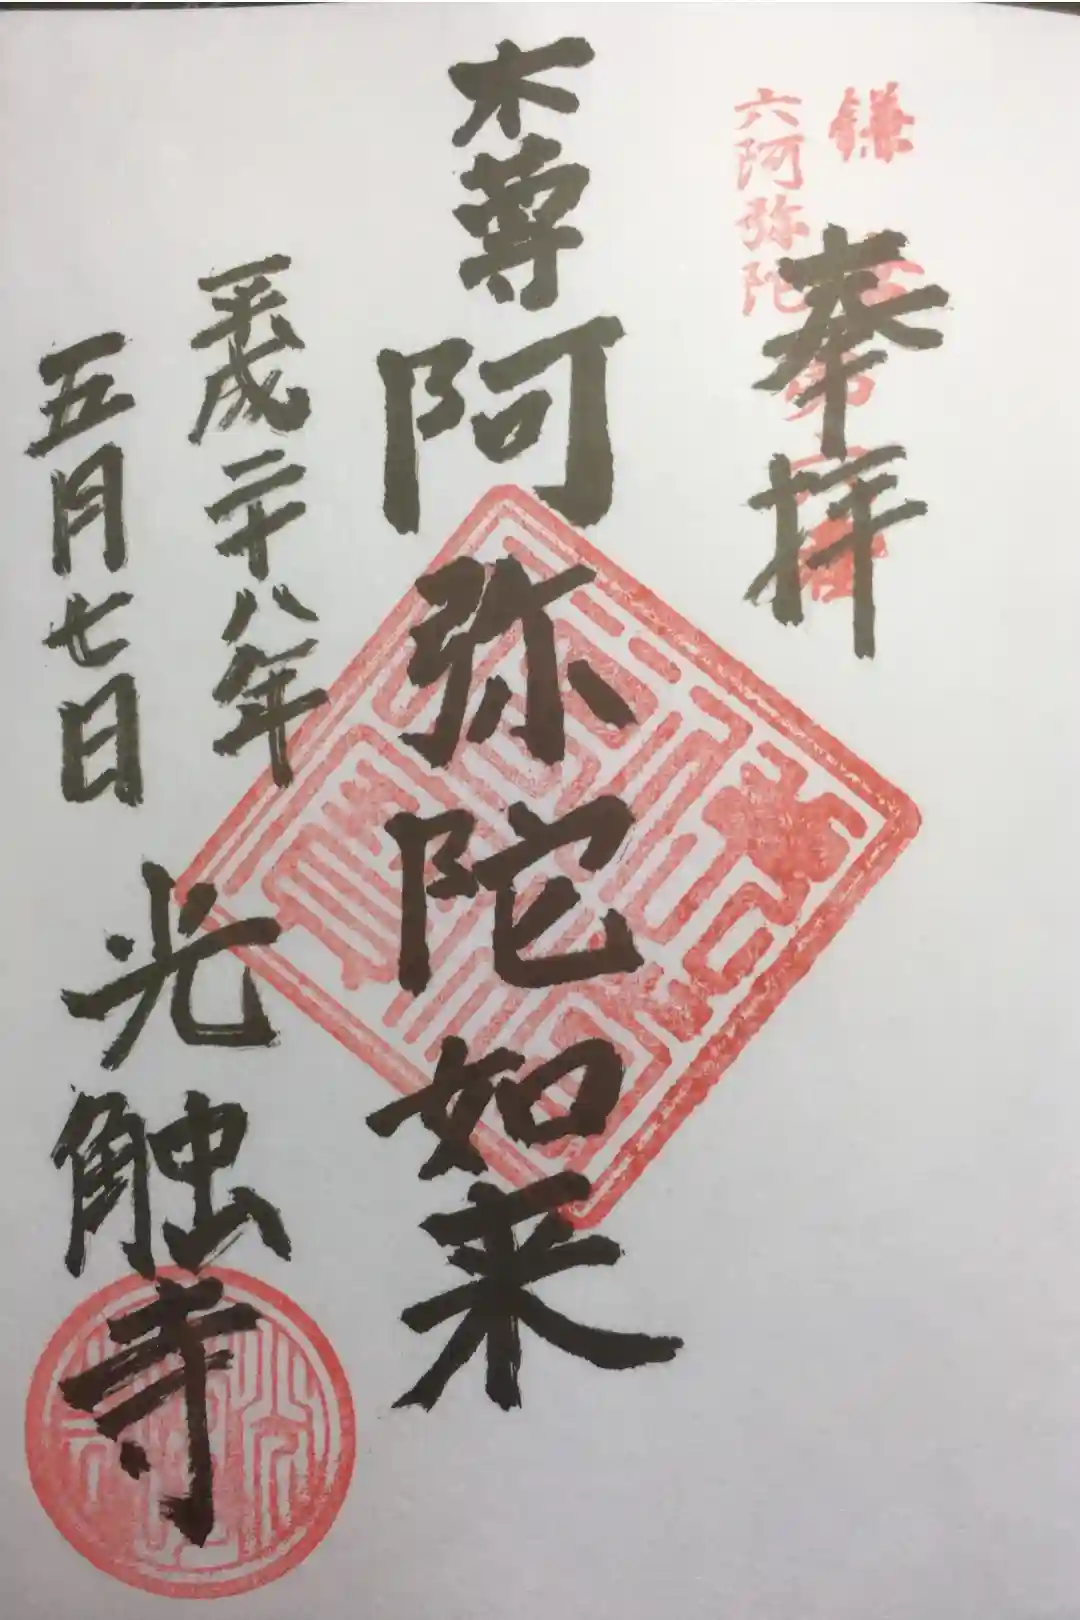 鎌倉
六阿弥陀
奉拝
本尊
阿弥陀如来
平成二十八年
五月七日
光触寺